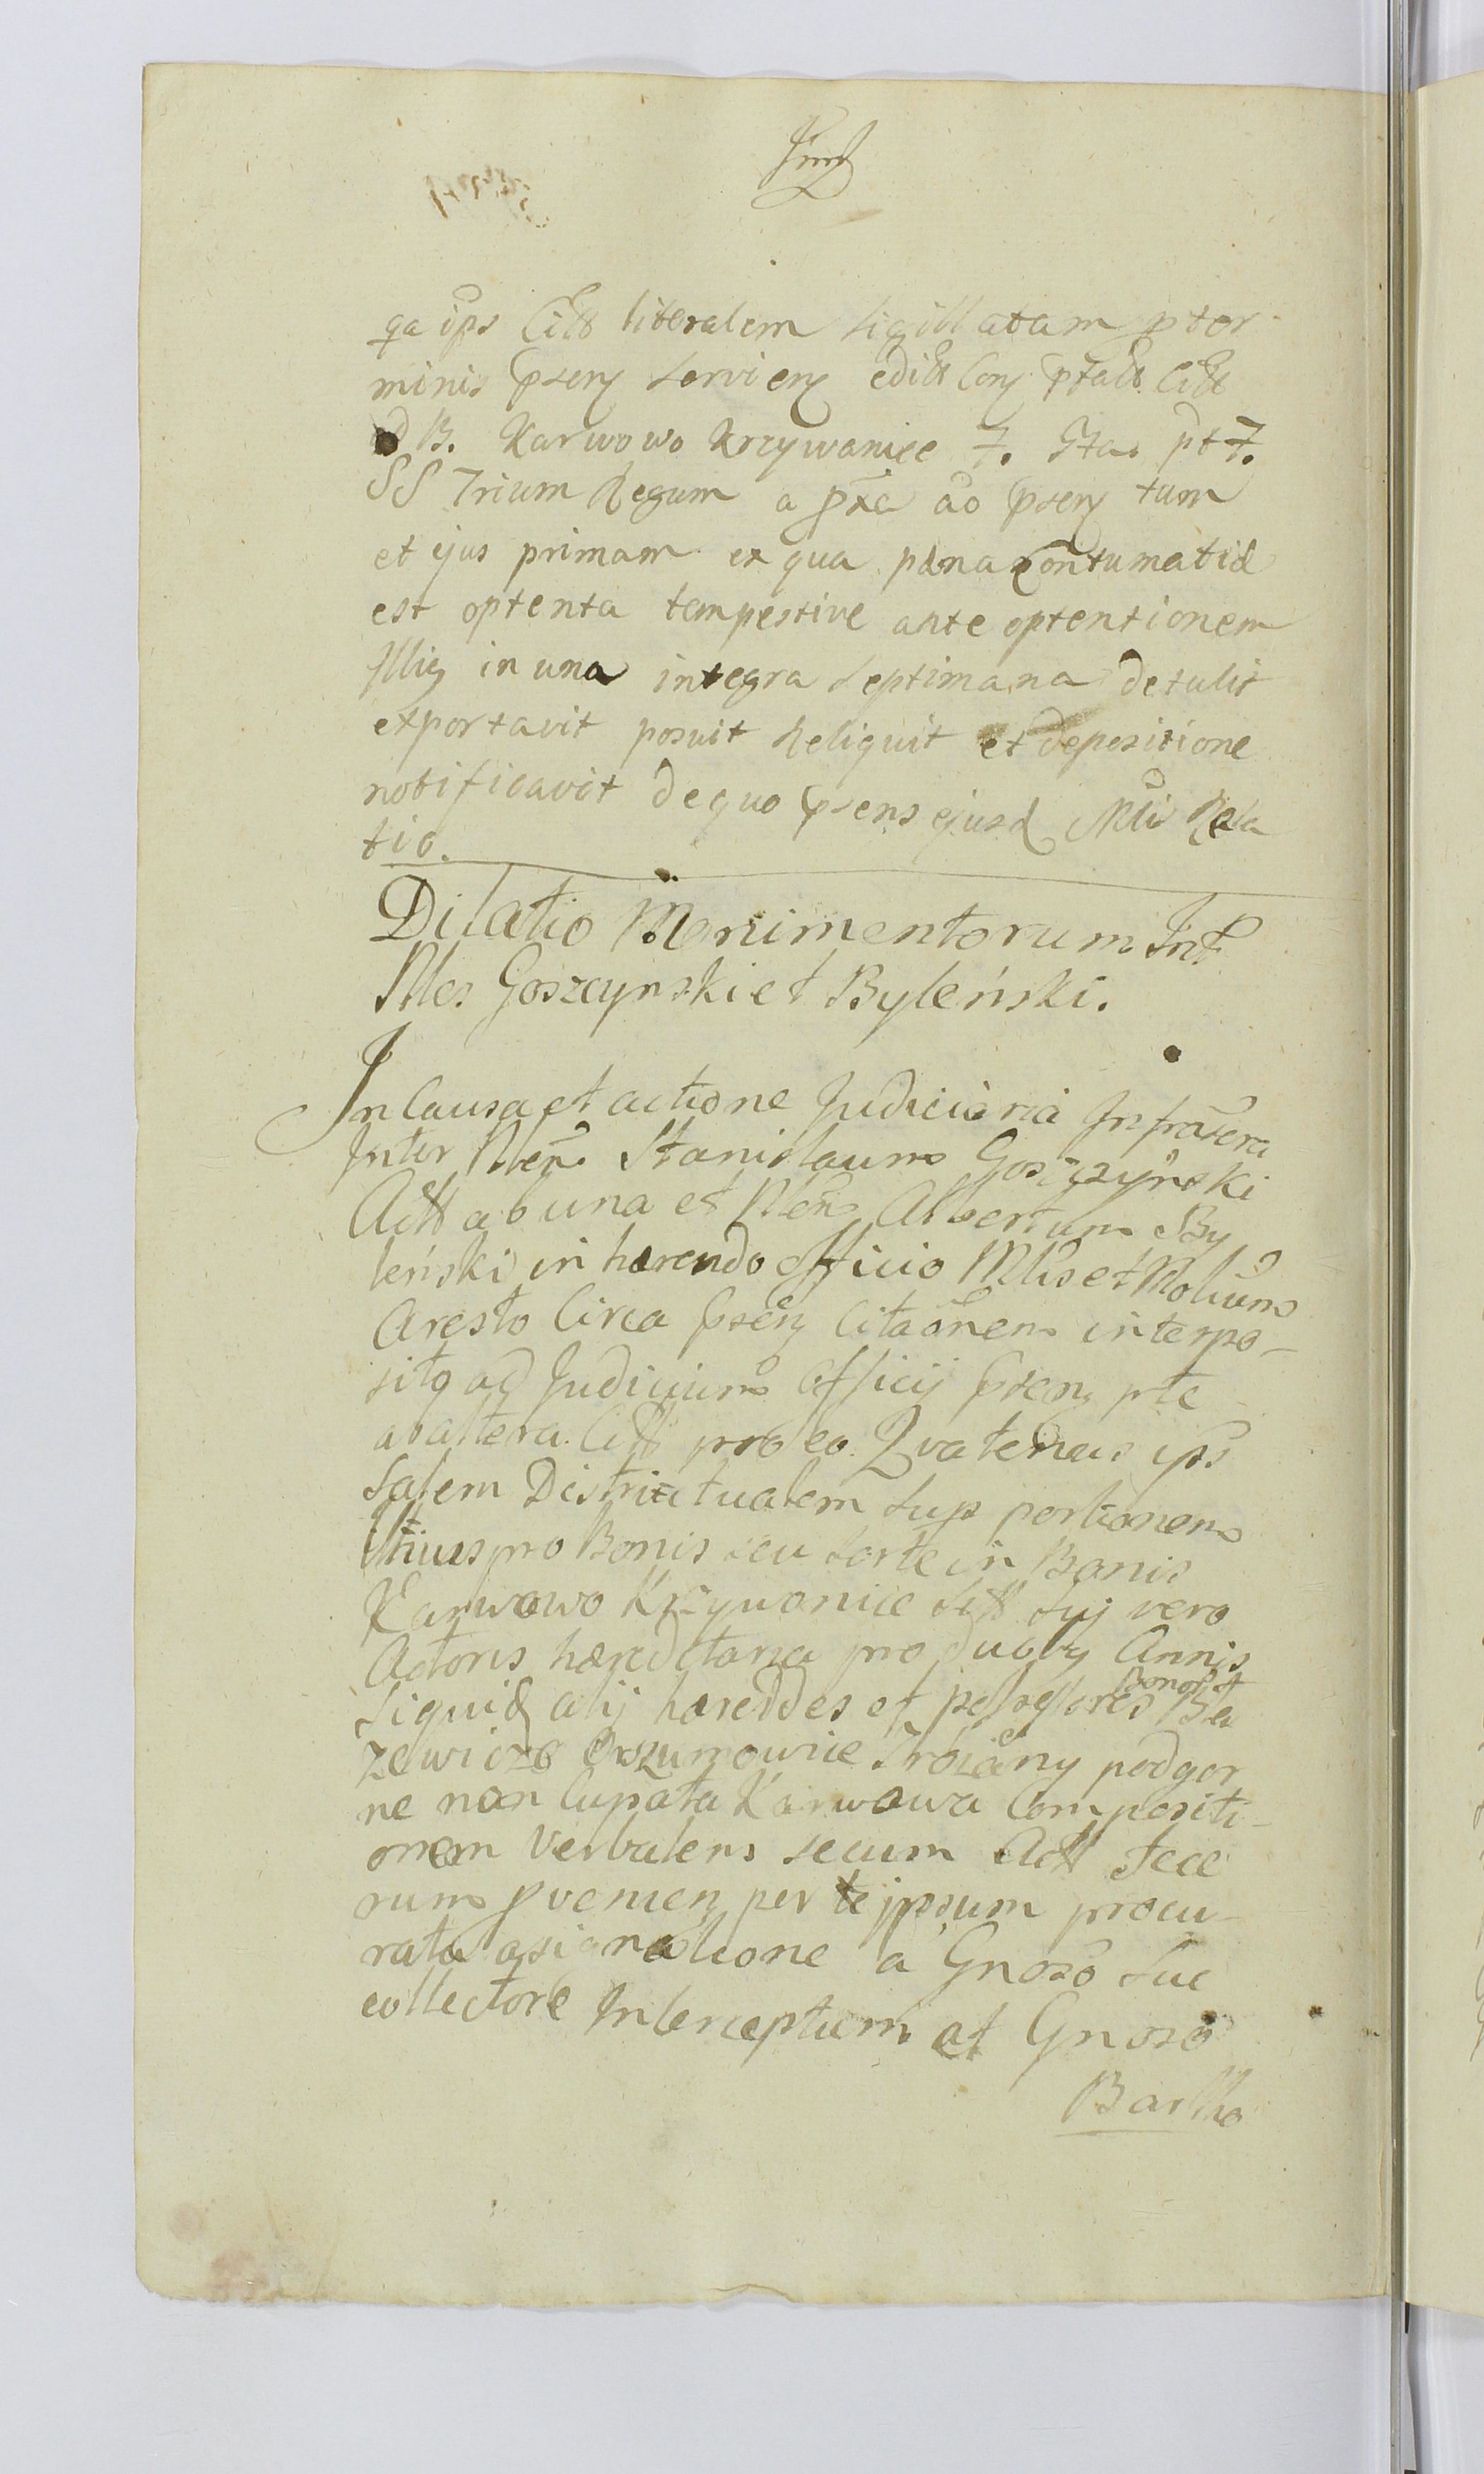 qa ips Citt literalem sigillatam pter
minis psenz servienz editt Conz ptatt Citt
B. Karwowo Krzywanice F. Sta pt F.
SS Trium Regum a pta ao psenz tum
et ejus primam ex qua pana contumatia
est optenta tempestive ante optentionem
Illiq in una integra septimana detulit
exportavit posuit Reliquit et depositione
notificavit de quo psens ejusd Mli Rela
tio.
Dilatio Monimentorum Int
Nles Goszcynski et Byleński.
In Causa et actione Judiciaria Infrascra
Inter Nlem Stanislaum Goszczynski
Actt ab una et Nlem Albertum By
leński in hærendo officio Mlis et Nolium
Aresto Circa psenz Citaonem interpo-
sitq ad Judicium Officij psenz pte
ab altera Citt pro eo Quatenus ips
Salem Districtualem sup portionem
Itius pro Bonis seu sorte in Bonis
Karwowo Krzywonice Citt suj vero
Actoris hæreditaria pro duobq Annis
siquid alij hæreddes et possessores Bonor Bla
zewicze Orszumowice Troiany podgor
ne non cupata Karwowa Compositi-
onem Verbalem secum Actt fece
rum pvenienz per te jpsum procu-
rata asignatione a Gnoso sue
collectore Interceptum et Gnoso
Bartho